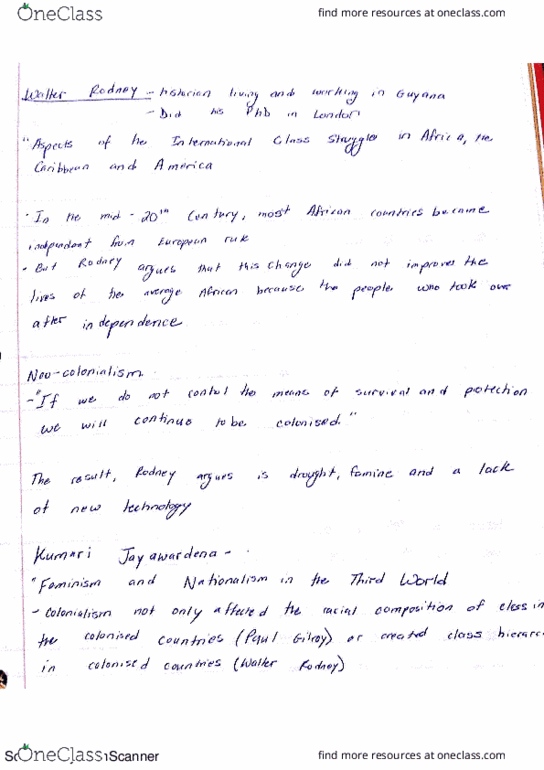 OneClass find more resources at oneclass.com
Walter Rodney - historian living and working in Guyana
- Did his PhD in London
"Aspects of the International Class Struggle in Africa, the
Caribbean and America
· In the mid-20th Century, most African countries became
independent from European rule
· But Rodney argues that this change did not improve the
lives of the average African because the people who took over
after independence
Neo-colonialism
- "If we do not control the means of survival and protection
we will continue to be colonised."
The result, Rodney argues is drought, famine and a lack
of new technology
Kumari Jayawardena -
"Feminism and Nationalism in the Third World
- Colonialism not only affected the racial composition of class in
the colonised countries (Paul Gilroy) or created class hierarc
in colonised countries (Walter Rodney)
OneClass Scanner find more resources at oneclass.com